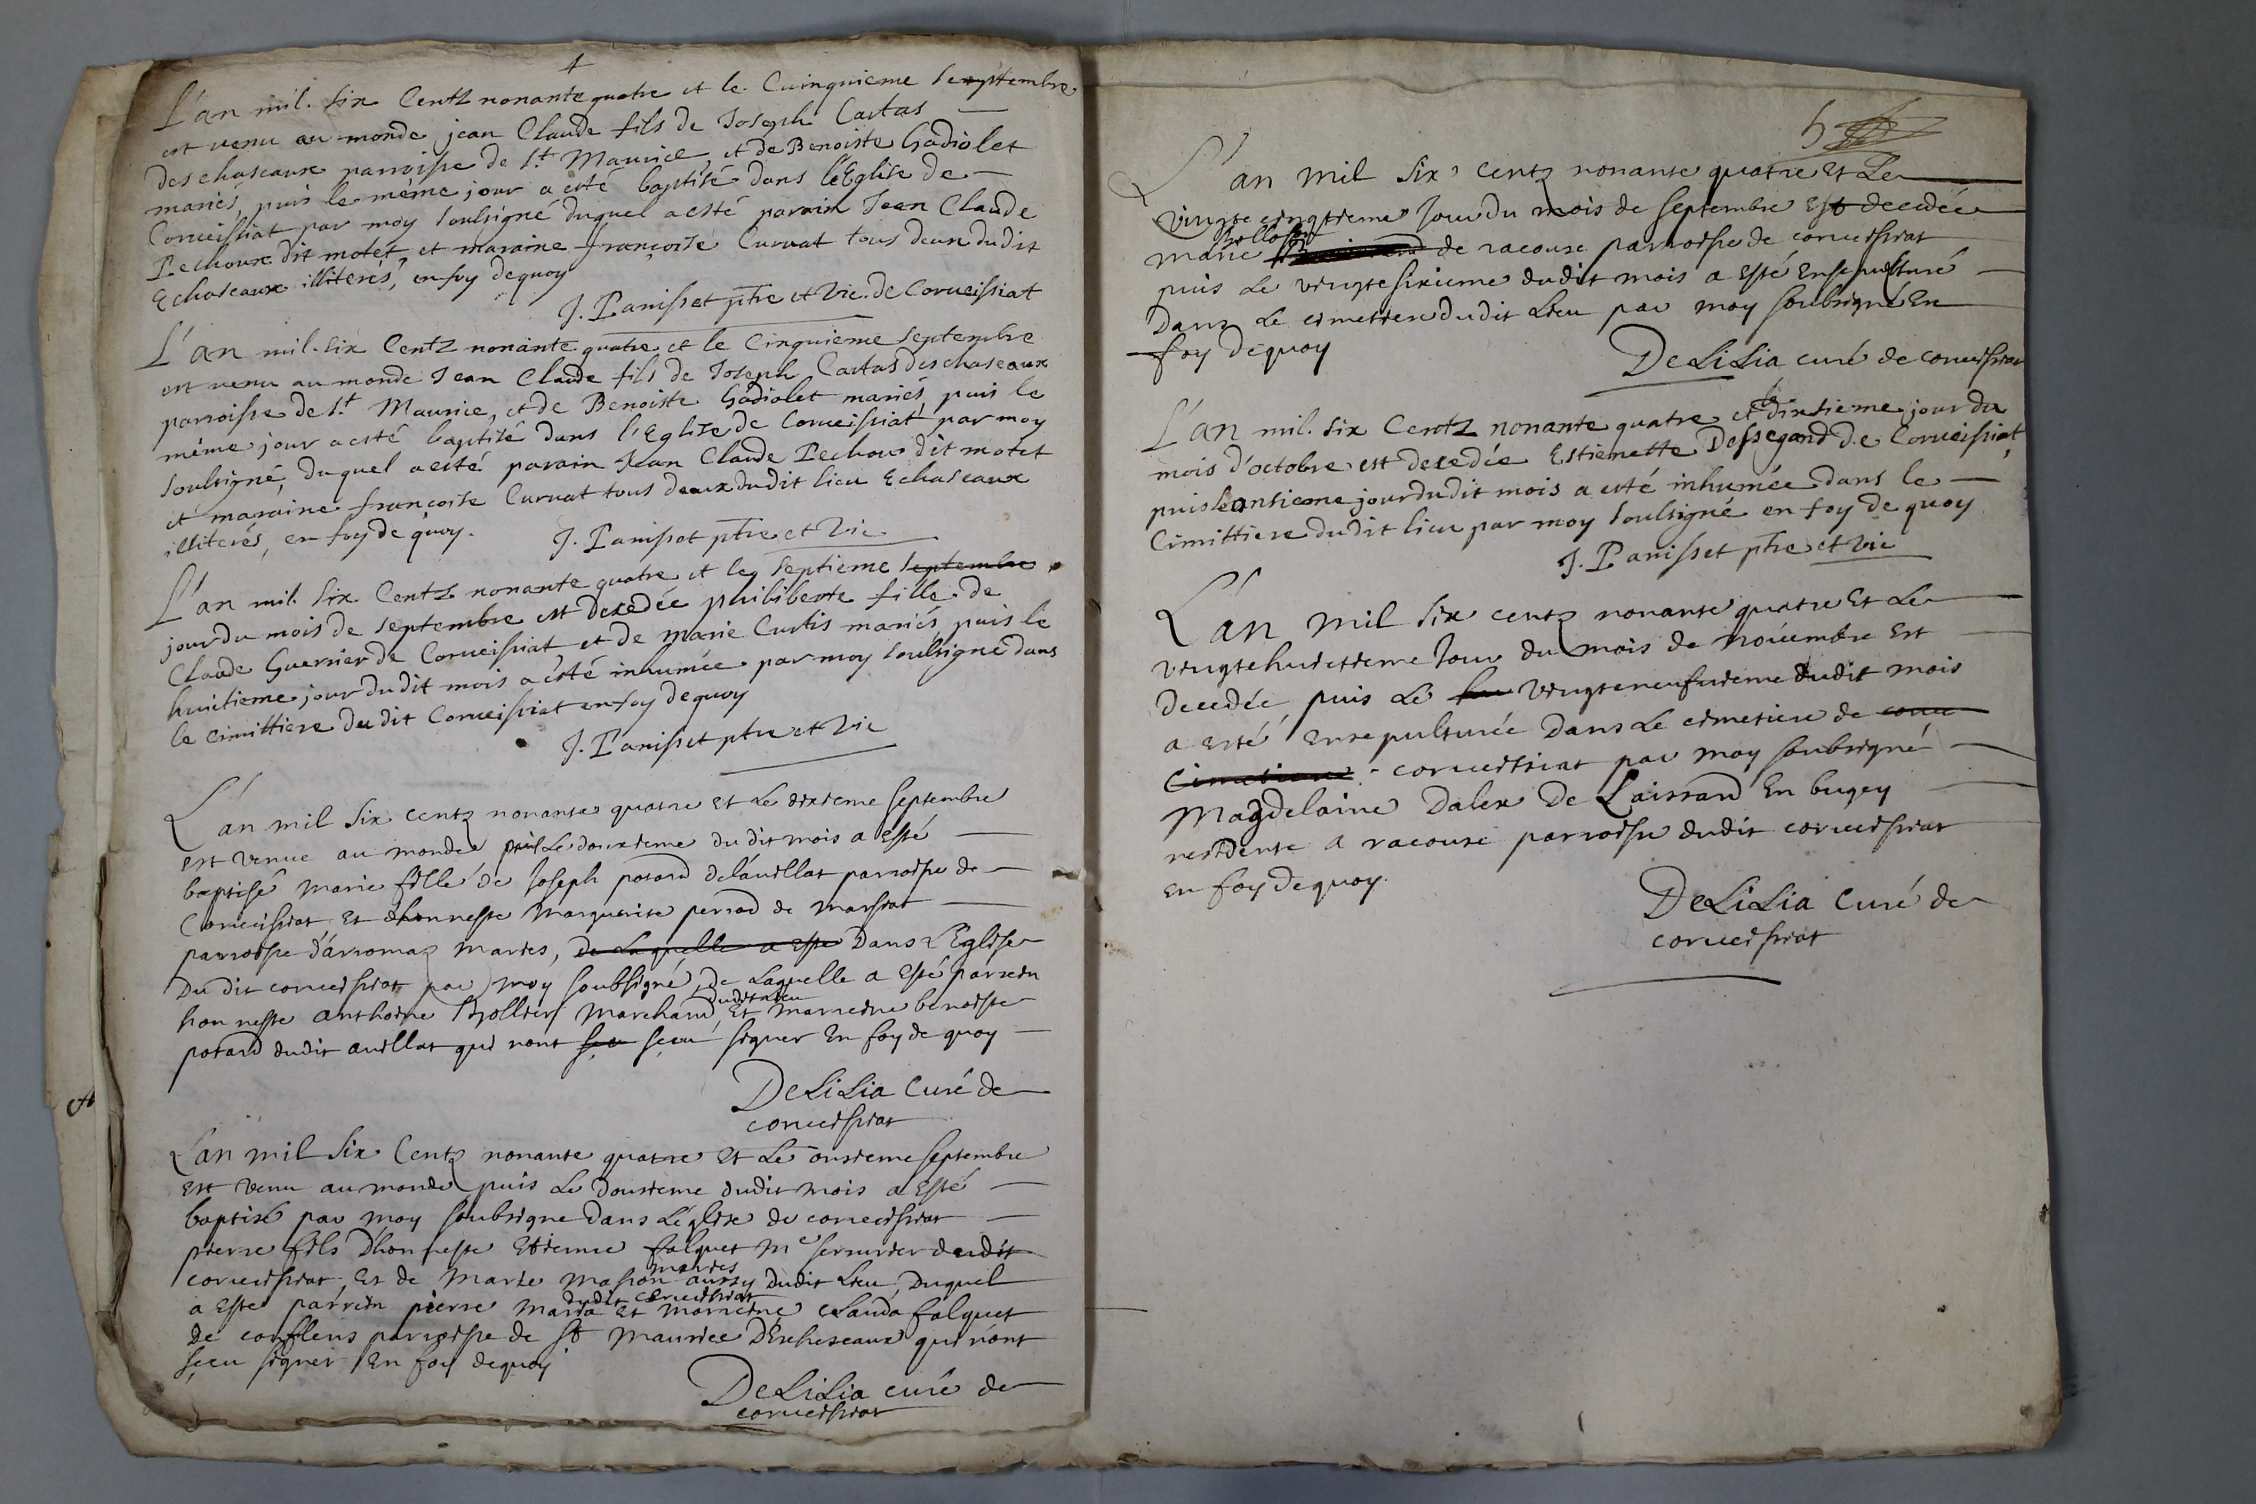 4
L'an mil. six Centz nonante quatre et le. Cuinquieme septembre
est venu au monde jean Claude fils de Joseph Cartas
des chaseaux parroisse de St Maurice, et de Benoiste Gadiolet
mariés, puis le même jour a esté baptisé dans l'Eglise de
Corveissiat par moy soulsigné duquel a esté parain Jean Claude
Pechoux dit motet, et maraine françoise Curvat tous deux dudit
Echaseaux illiterés, en foy dequoy
J. Panisset ptre et vic. de Corveissiat
L'an mil. six Centz nonante quatre et le Cinquieme septembre
est venu au monde Jean Claude fils de Joseph Cartas des chaseaux
parroisse de St Maurice, et de Benoiste Gadiolet mariés, puis le
même jour a esté baptisé dans l'Eglise de Corveissiat par moy
soulsigné, duquel a esté parain Jean Claude Pechoux dit motet
et maraine françoise Curvat tous deux dudit lieu Echaseaux
illiterés, en foy de quoy.
J. Panisset ptre et vic
L'an mil. six Centz nonante quatre et le septieme septembre
jour du mois de septembre est decedée philiberte fille de
Claude Guerrier de Corveissiat et de marie Curtis mariés, puis le
huitieme jour dudit mois a esté inhumée par moy soulsigné dans
le cimittiere dudit Corveissiat en foy dequoy
J. Panisset ptre et vic
L'an mil six centz nonante quatre et Le dixieme septembre
est venue au monde puis Le douxieme dudit mois a esté
baptisé marie fille de Joseph potard delavillat parroisse de
Corveissiat, et dhonneste marguerite perrod de marssiat
parroisse d'arromaz mariés, de Laquelle a esté Dans L'Eglise
Du dit corveissiat par moy soubsigné, de Laquelle a esté parrein
honneste anthoine Brollier marchand dudit lieu Et marreine benoiste
potard dudit avillat qui nont sçeu sçeu signer En foy de quoy
DeLiLia Curé de
corveissiat
L'an mil six Centz nonante quatre et Le onsieme septembre
est venu au monde puis Le dousieme dudit mois a esté
baptisé par moy soubsigne Dans L'églixe de corveissiat
pierre fils Dhonneste Etienne falquet me serrurier dudit
corveissiat Et de marie masson mariés aussy Dudit Lieu, Duquel
a esté parrein pierre maria dudit corveissiat Et marreine Clauda falquet
de conflens parroisse de St maurice D'Excheseaux qui n'ont
sçeu signer En foy dequoy
DeLiLia curé de
corveissiat
5
L'an mil six centz nonante quatre Et Le
vingte cinqtieme Jour Du mois de septembre Est decedée
marie de racouze parroisse de corveissiat
puis Le vingtesixieme dudit mois a esté Ensepulturé
Dans Le cimetiere dudit Lieu par moy soubsigné En
foy Dequoy
DeLiLia curé de corveissiat
L'an mil. six Centz nonante quatre et le dixsieme jour du
mois d'octobre est decedée Estienette Dessegand de Corveissiat,
puis le onsieme jour dudit mois a esté inhumée dans le
Cimittiere dudit lieu par moy soulsigné en foy de quoy
J. Panisset ptre et vic
L'an mil six centz nonante quatre Et Le
vingtehuictieme Jour du mois de novembre Est
Decedée puis Le vingteneufvieme dudit mois
a esté ensepulturée Dans Le cimetiere de corve
Cimetiere corveissiat par moy soubsigné
Magdelaine Dalex De Laissard En bugey
residente a racouze parroisse dudit corveissiat
en foy Dequoy.
DeLiLia Curé de
corveissiat